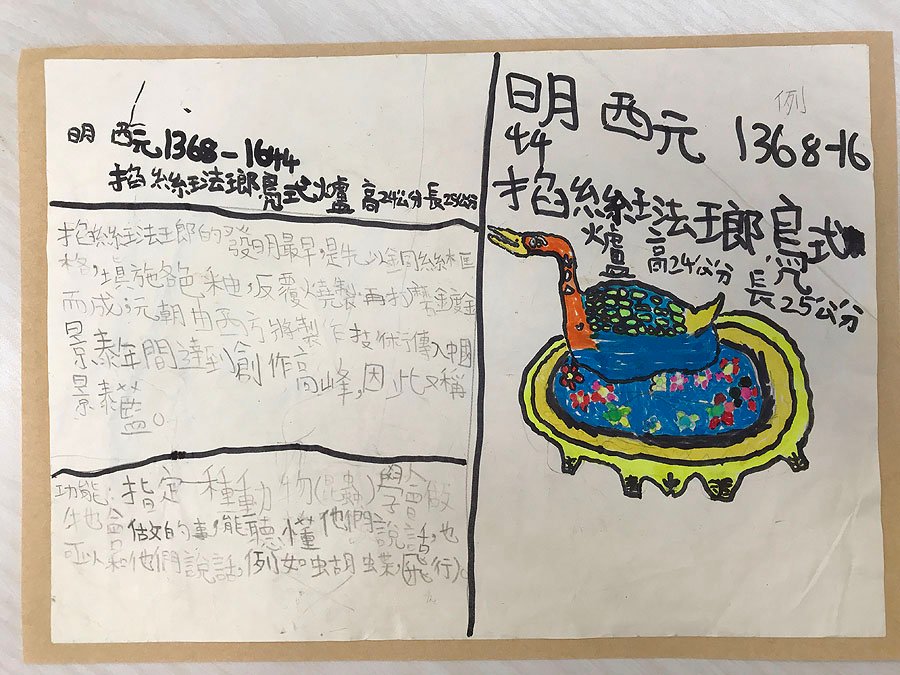 明 西元 1368-1644
掐絲琺瑯鳧式爐 高24公分 長25公分
掐絲琺瑯的發明最早,是先以銅絲框
格,填施各色釉,反覆燒製,再打磨鍍金
而成,元朝由西方將製作技術傳入中國
景泰年間達到創作高峰,因此又稱
景泰藍。
功能:指定一種動物(昆蟲)學會做
牠會做的事,能聽懂他們說話,也
可以和他們說話,例如蝴蝶,(飛行)。
例
明 西元 1368-16
44
掐絲琺瑯鳧式
爐 高24公分
長25公分